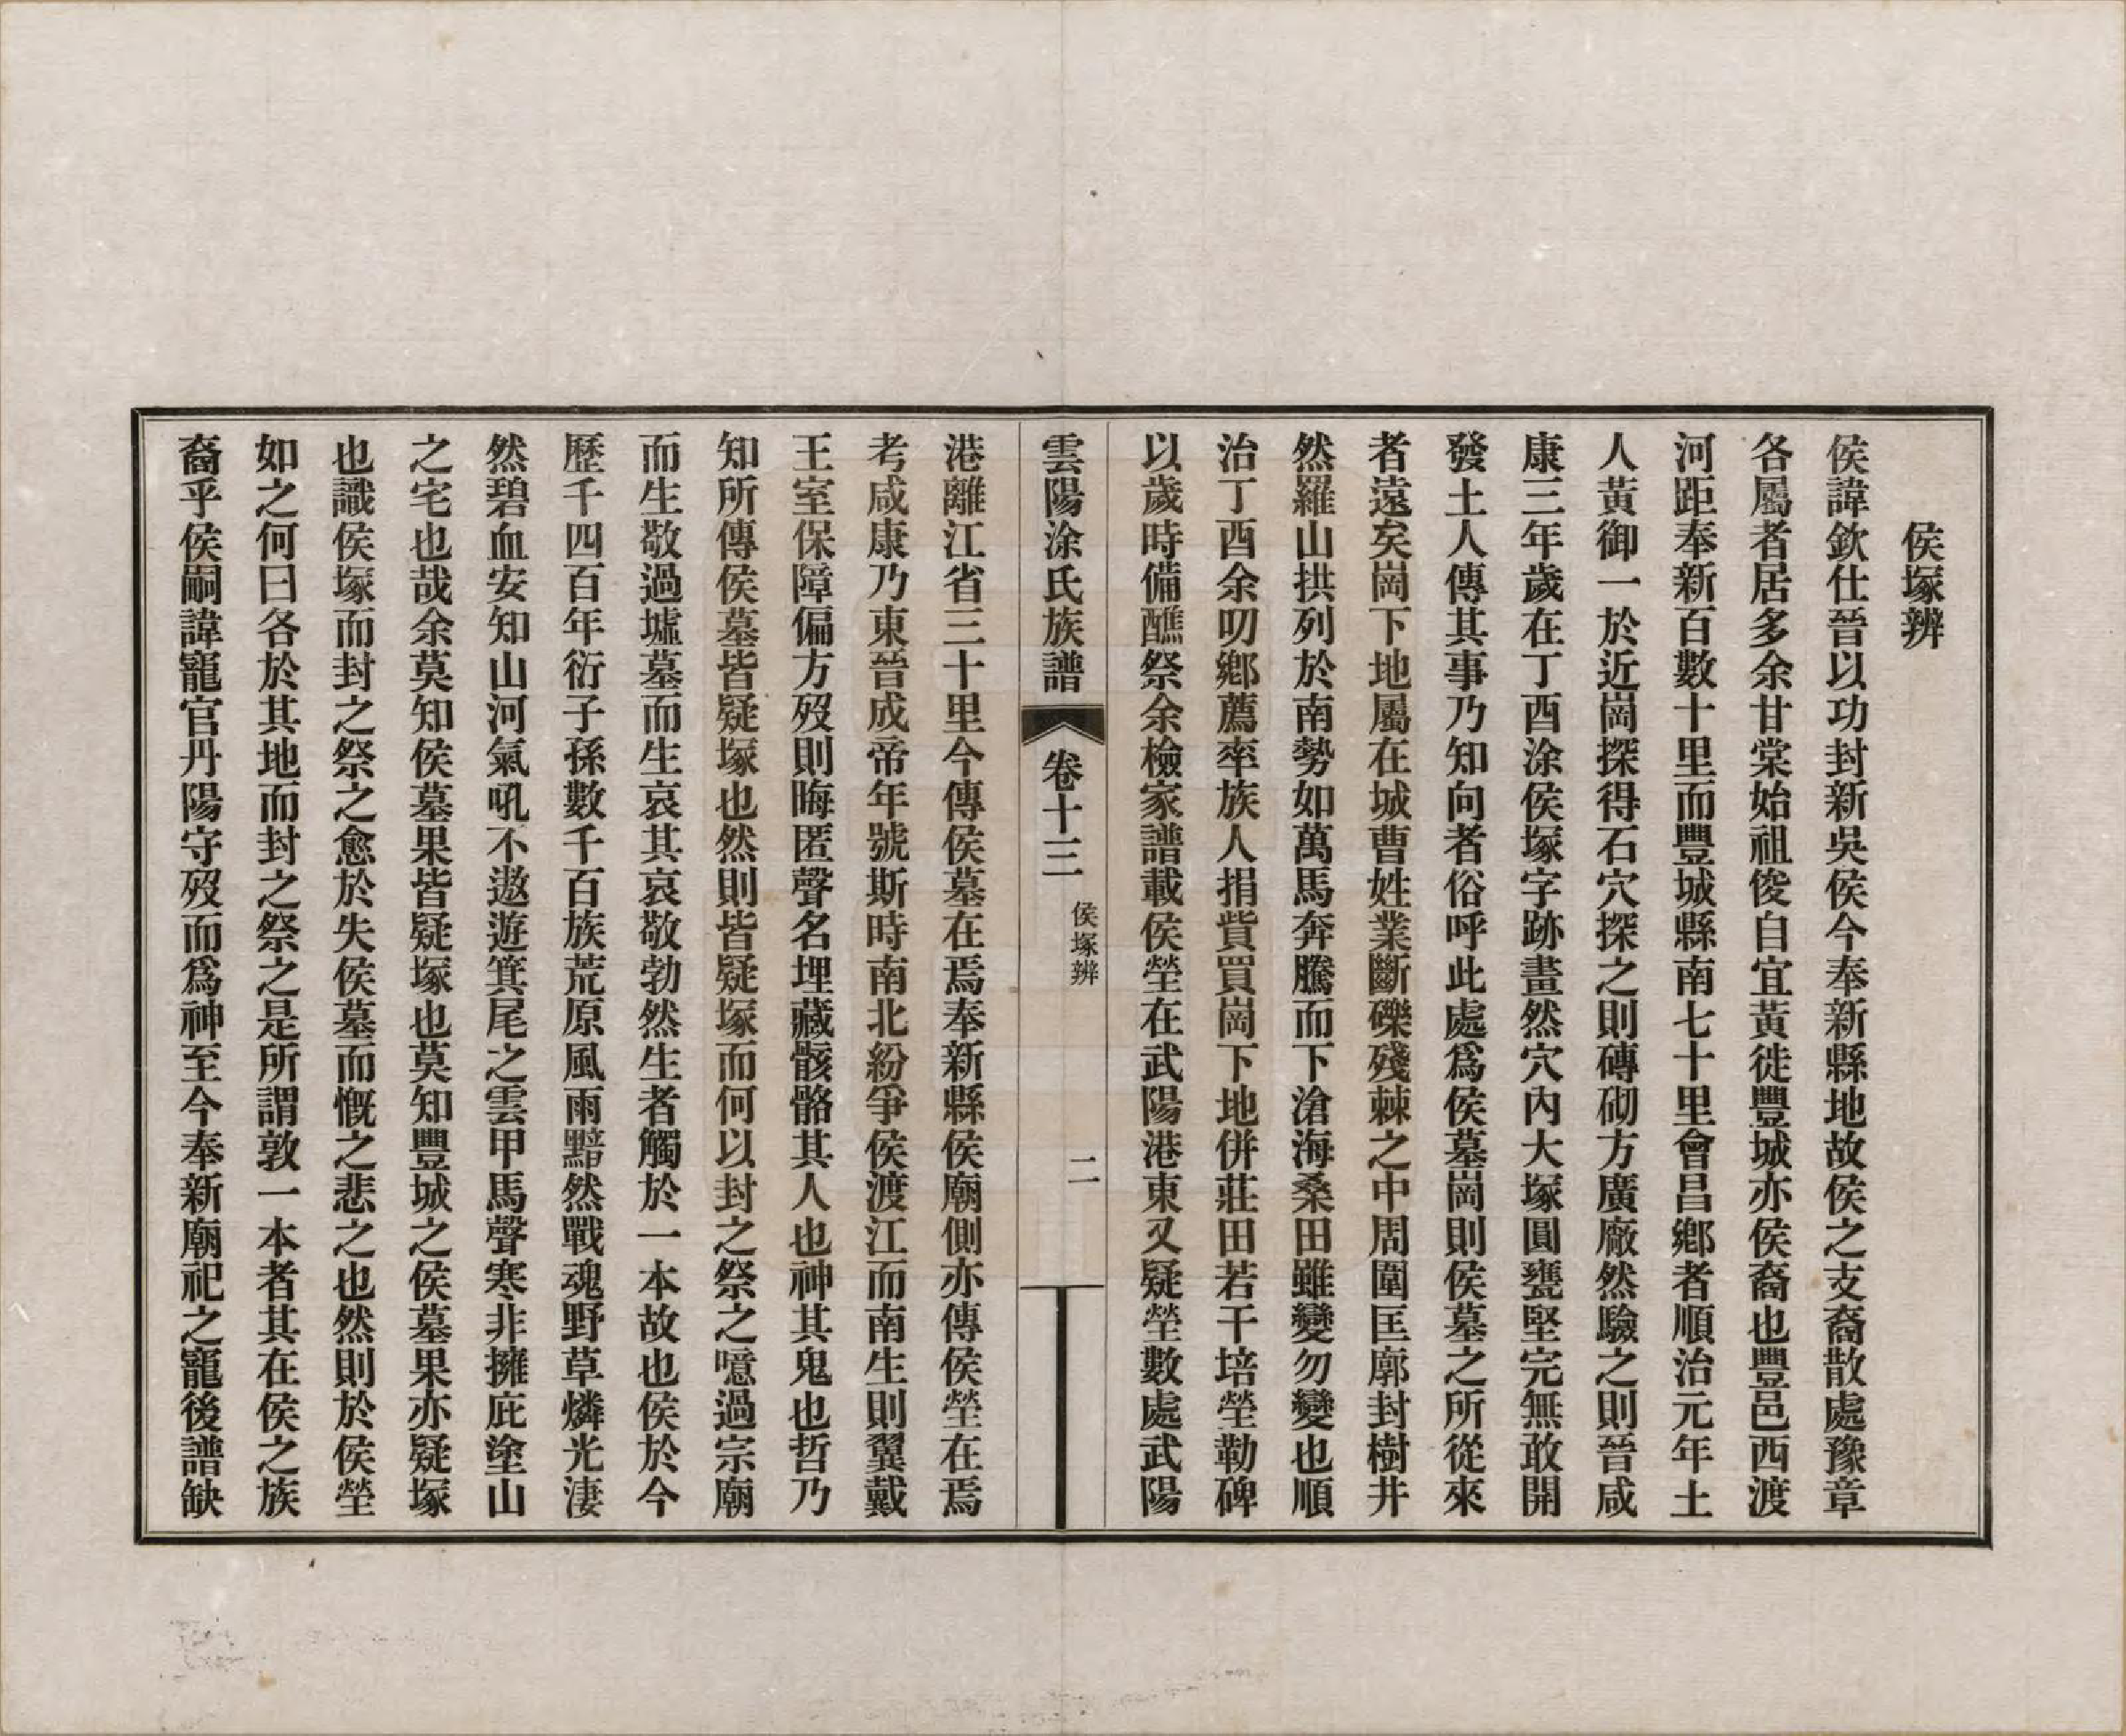 侯塚辨
侯諱欽仕晉以功封新吳侯今奉新縣地故侯之支裔散處豫章
各屬者居多余甘棠始祖俊自宜黃徙豐城亦侯裔也豐邑西渡
河距奉新百數十里而豐城縣南七十里會昌鄉者順治元年土
人黃御一於近崗探得石穴探之則磚砌方廣廠然驗之則晉咸
康三年歲在丁酉涂侯塚字跡畫然穴內大塚圓甕堅完無敢開
發土人傳其事乃知向者俗呼此處爲侯墓崗則侯墓之所從來
者遠矣崗下地屬在城曹姓業斷礫殘棘之中周圍匡廓封樹井
然羅山拱列於南勢如萬馬奔騰而下滄海桑田雖變勿變也順
治丁酉余叨鄉薦率族人捐貲買崗下地併莊田若干培塋勒碑
以歲時備醮祭余檢家譜載侯塋在武陽港東又疑塋數處武陽
雲陽涂氏族譜
卷十三
侯塚辨
二
港離江省三十里今傳侯墓在焉奉新縣侯廟側亦傳侯塋在焉
考咸康乃東晉成帝年號斯時南北紛爭侯渡江而南生則翼戴
王室保障偏方歿則晦匿聲名埋藏骸骼其人也神其鬼也哲乃
知所傳侯墓皆疑塚也然則皆疑塚而何以封之祭之噫過宗廟
而生敬過墟墓而生哀其哀敬勃然生者觸於一本故也侯於今
歷千四百年衍子孫數千百族荒原風雨黯然戰魂野草燐光淒
然碧血安知山河氣吼不遨遊箕尾之雲甲馬聲寒非擁庇塗山
之宅也哉余莫知侯墓果皆疑塚也莫知豐城之侯墓果亦疑塚
也識侯塚而封之祭之愈於失侯墓而慨之悲之也然則於侯塋
如之何曰各於其地而封之祭之是所謂敦一本者其在侯之族
裔乎侯嗣諱寵官丹陽守歿而爲神至今奉新廟祀之寵後譜缺